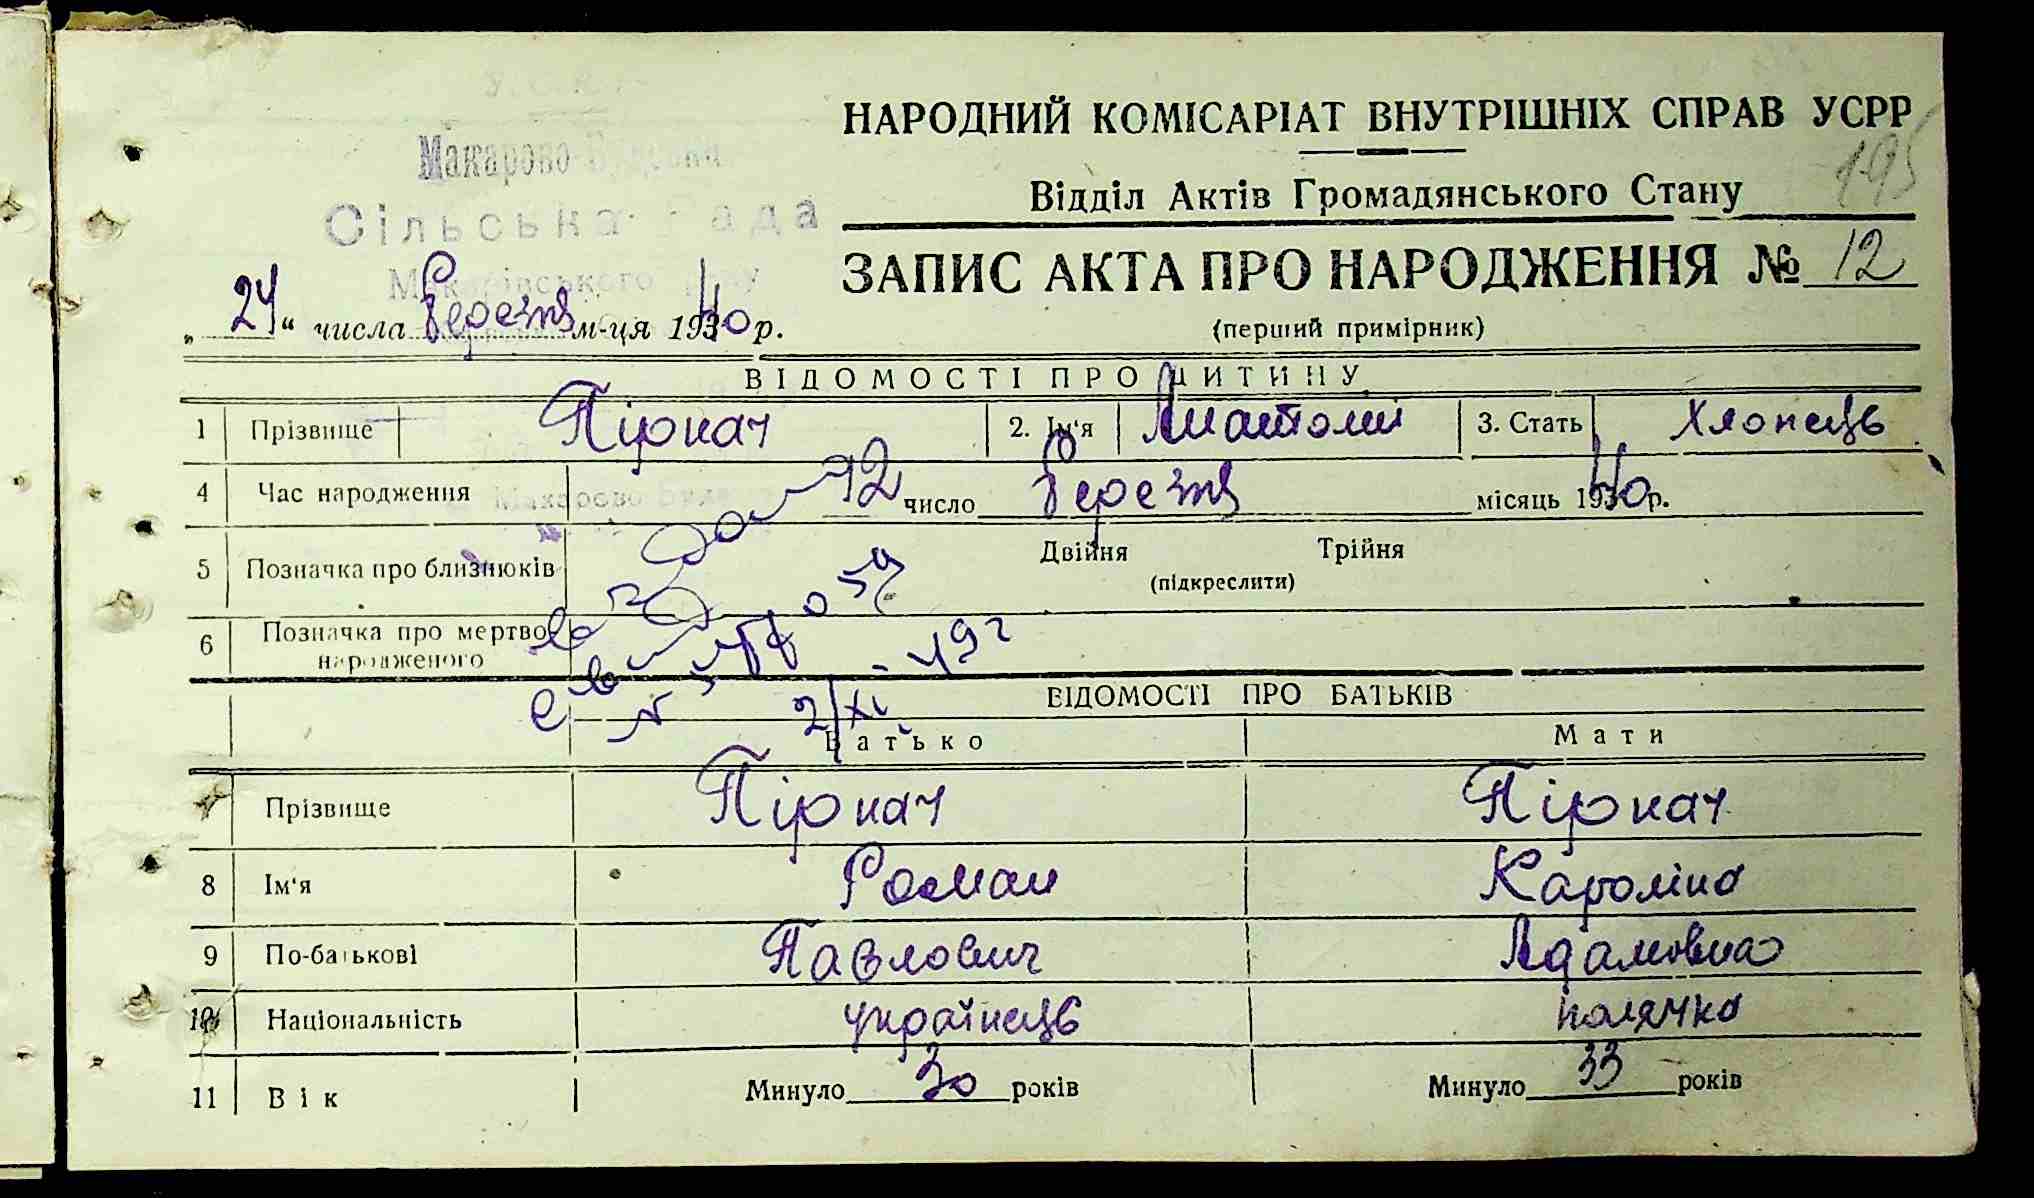 НАРОДНИЙ КОМІСАРІАТ ВНУТРІШНІХ СПРАВ УСРР
195
Макарово-
Сільська Рада
Макарівського р-ну
Відділ Актів Громадянського Стану
ЗАПИС АКТА ПРО НАРОДЖЕННЯ № 12
(перший примірник)
„24“ числа березня м-ця 1940 р.
ВІДОМОСТІ ПРО ДИТИНУ
1 Прізвище Пірнач 2. Ім'я Анатолій 3. Стать Хлопець
4 Час народження 12 число березня місяць 1940 р.
Макарово
5 Позначка про близнюків Двійня Трійня
(підкреслити)
6 Позначка про мертвонародженого
2/XI - 49 г
ВІДОМОСТІ ПРО БАТЬКІВ
Батько Мати
7 Прізвище Пірнач Пірнач
8 Ім'я Роман Кароліна
9 По-батькові Павлович Адамовна
10 Національність українець полячка
11 Вік Минуло 30 років Минуло 33 років